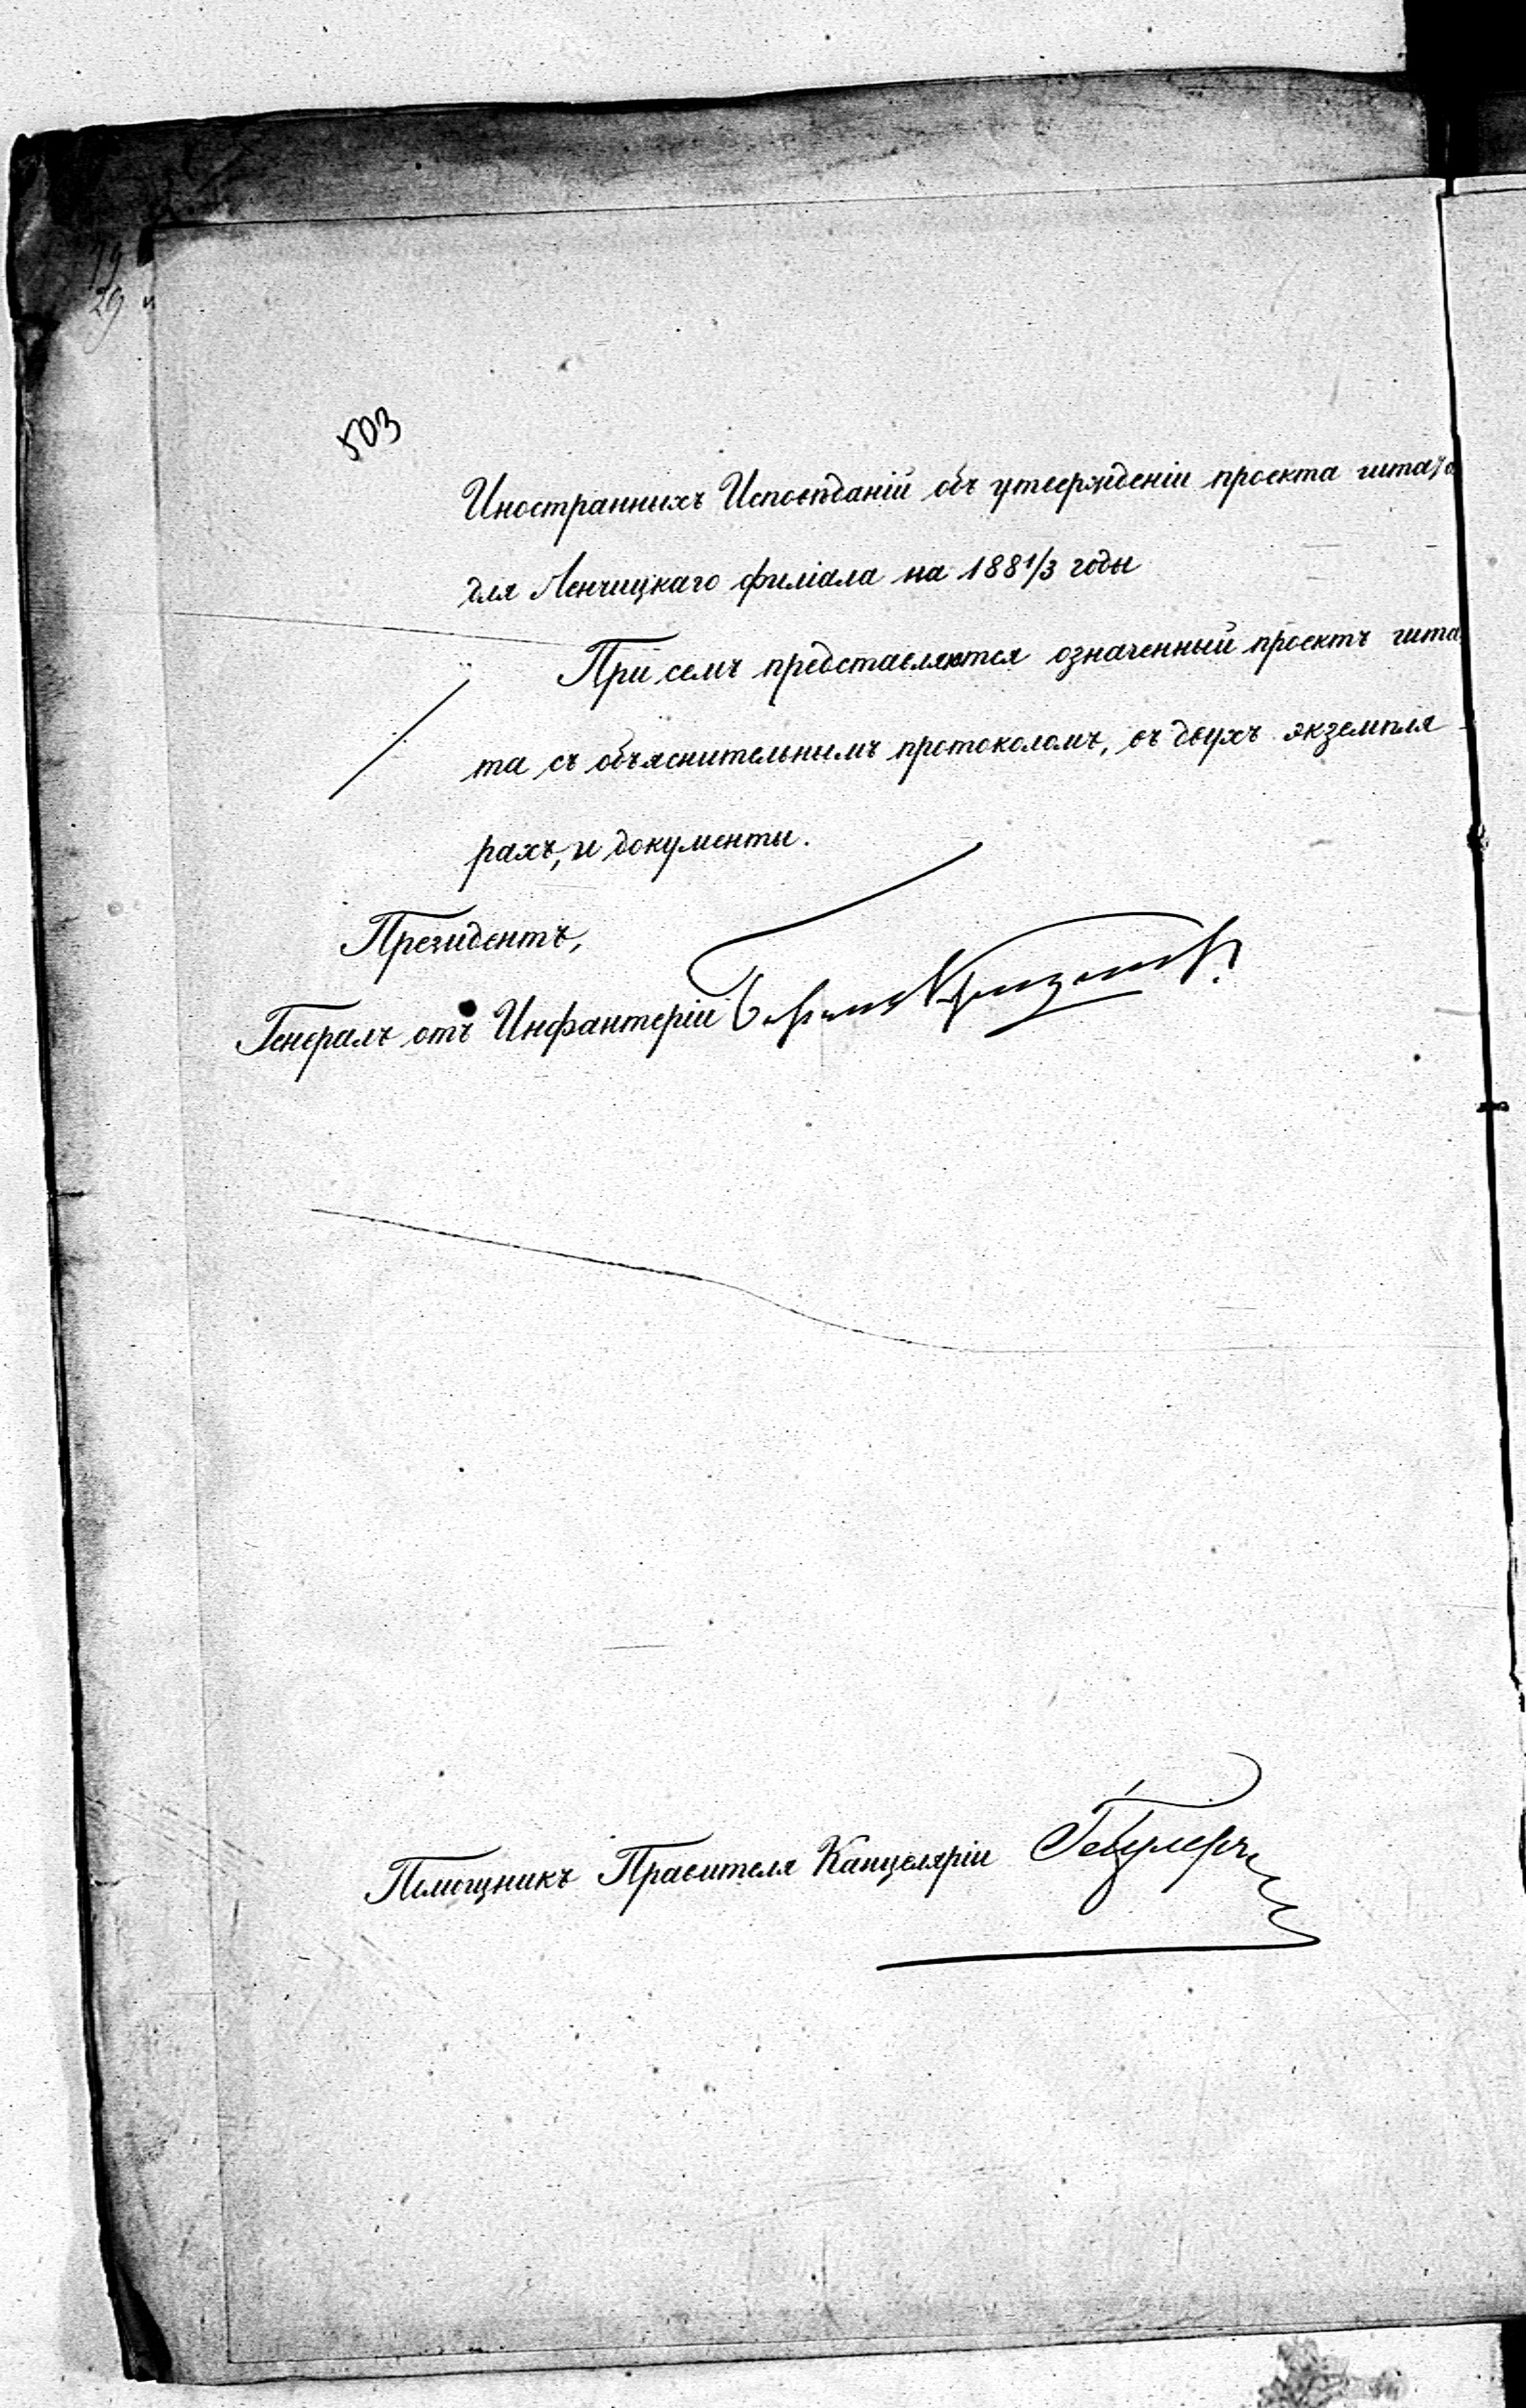 19
29
503
Иностранныхъ Исповѣданій объ утвержденіи проекта штата
для Ленчицкаго филіала на 1881/3 годы
При семъ представляются означенный проектъ шта
та съ объяснительнымъ протоколомъ, въ двухъ экземпля
рахъ, и документы.
Президентъ,
Генералъ отъ Инфантеріи
Помощникъ Правителя Канцеляріи